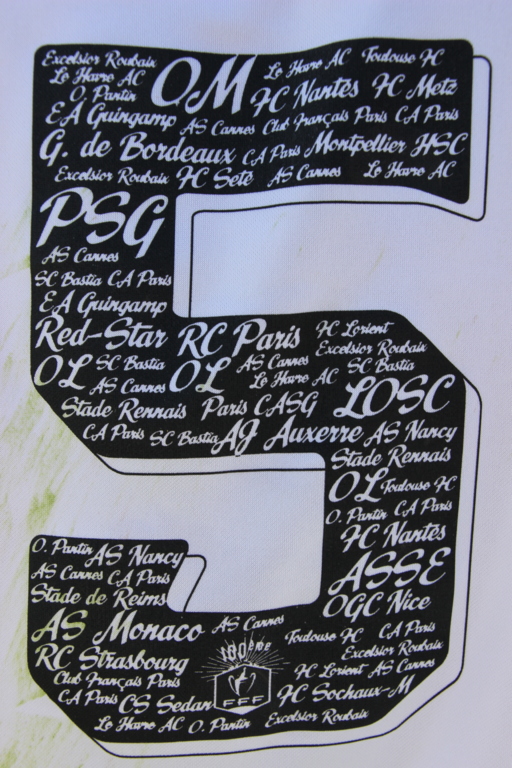 Excelsior Roubaix OM Le Havre AC Toulouse FC
Le Havre AC FC Nantes FC Metz
O. Pantin
EA Guingamp AS Cannes Club Français Paris CA Paris
G. de Bordeaux CA Paris Montpellier HSC
Excelsior Roubaix FC Sete AS Cannes Le Havre AC
PSG
AS Cannes
SC Bastia CA Paris
EA Guingamp
Red-Star RC Paris FC Lorient
Excelsior Roubaix
OL SC Bastia OL AS Cannes SC Bastia
AS Cannes Le Havre AC LOSC
Stade Rennais Paris CASG
CA Paris SC Bastia AJ Auxerre AS Nancy
Stade Rennais
OL Toulouse FC
O. Pantin CA Paris
FC Nantes
O. Pantin AS Nancy
AS Cannes CA Paris ASSE
Stade de Reims OGC Nice
AS Monaco AS Cannes Toulouse FC CA Paris
RC Strasbourg 100ème Excelsior Roubaix
Club Français Paris FC Lorient AS Cannes
CA Paris CS Sedan FFF FC Sochaux-M
Le Havre AC O. Pantin Excelsior Roubaix